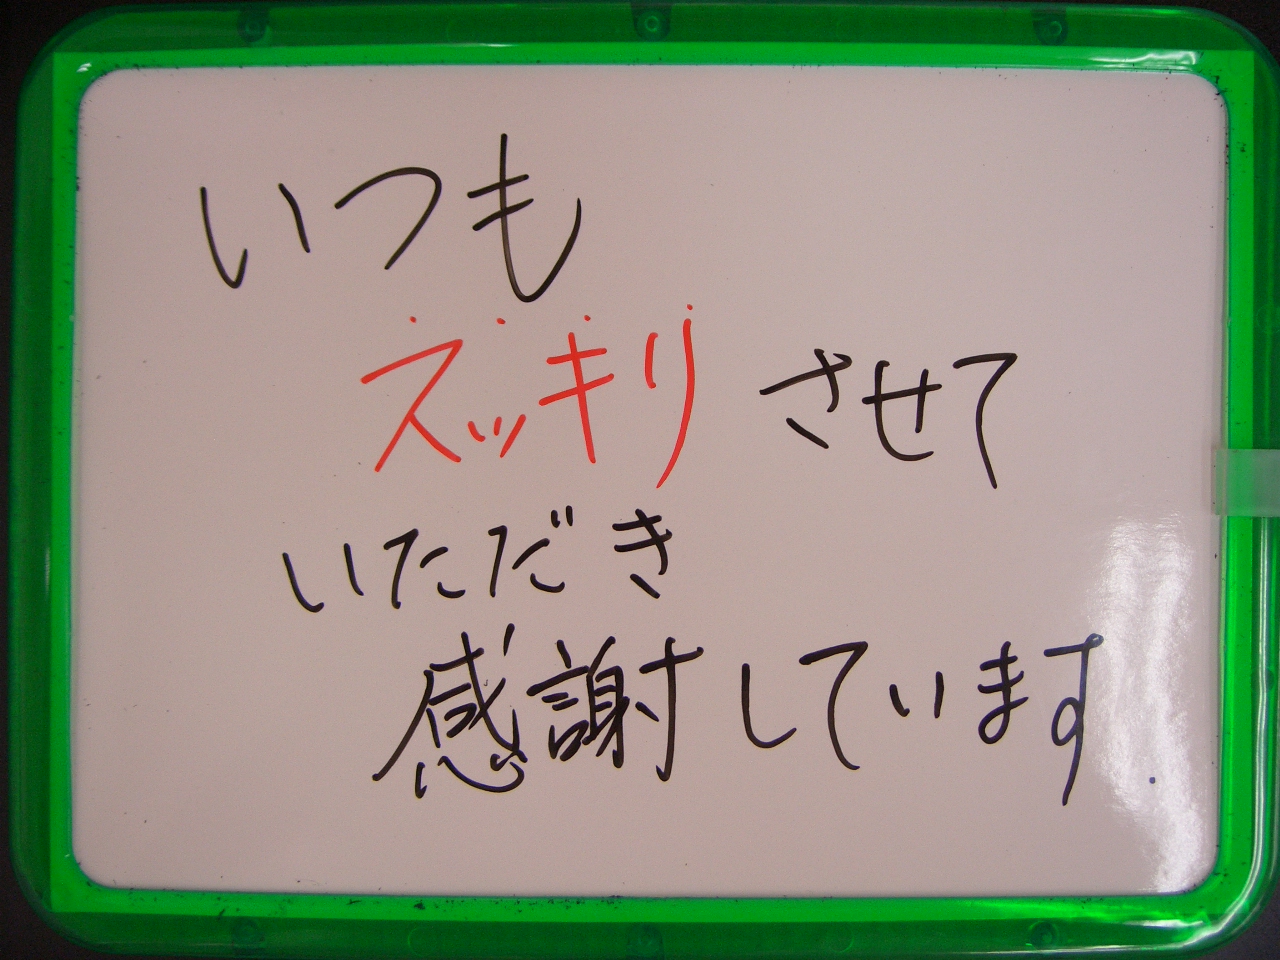 いつも
スッキリ させて
いただき
感謝しています.